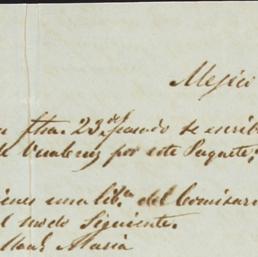 Mexico
fha. 23 del pasado se escrib
de Veracruz por este Paquete,
una lib.ª del Comisari
l modo Siguiente.
Maria